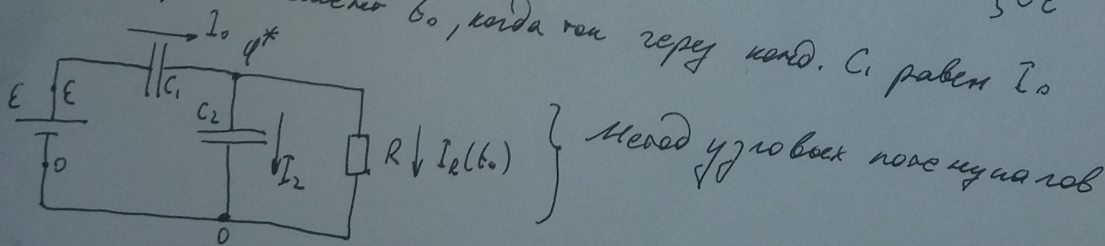 t₀, когда ток через конд. C₁ равен I₀
I₀
φ*
ε
ε
C₁
C₂
0
I₂
R
I_R(t₀)
0
Метод узловых потенциалов